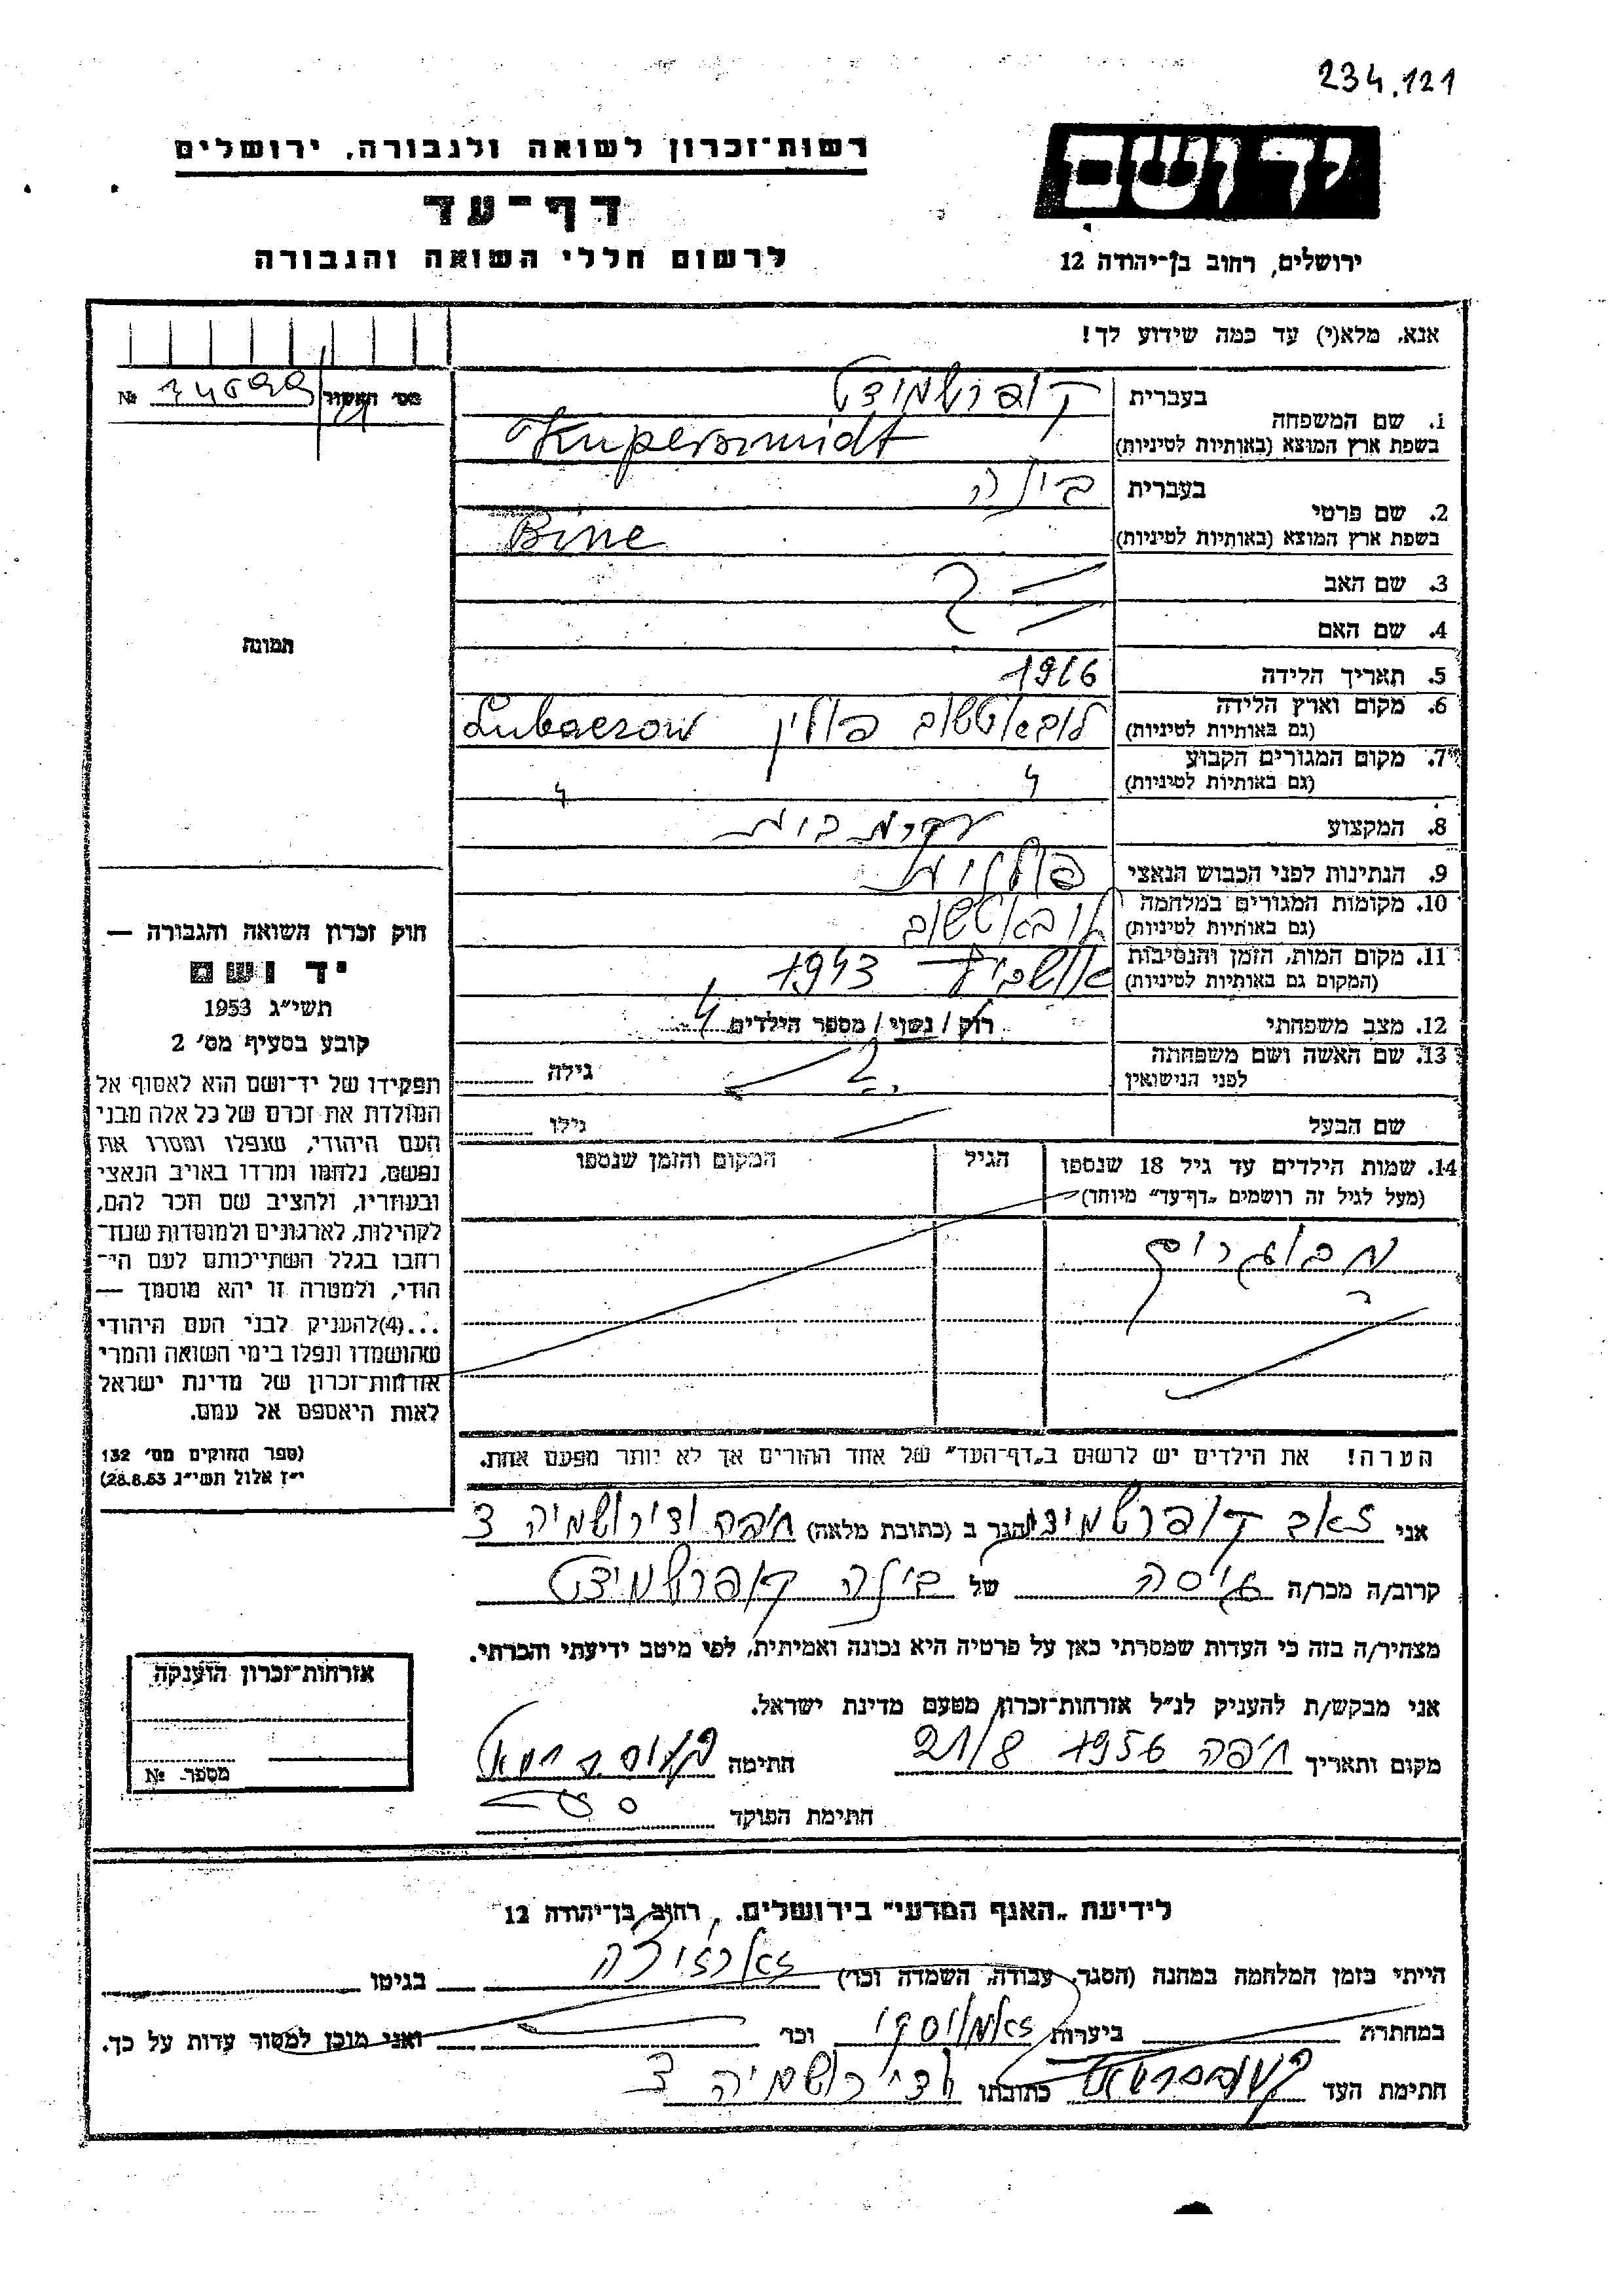 234.121
רשות־זכרון לשואה ולגבורה, ירושלים
דף־עד
לרשום חללי השואה והגבורה
ידושם
ירושלים, רחוב בן־יהודה 12
אנא, מלא(י) עד כמה שידוע לך!
מס' האשור №
1. שם המשפחה
בעברית קופרשמידט
בשפת ארץ המוצא (באותיות לטיניות) Kuperszmidt
2. שם פרטי
בעברית בינה
בשפת ארץ המוצא (באותיות לטיניות) Bine
3. שם האב
4. שם האם
5. תאריך הלידה 1916
6. מקום וארץ הלידה לובאטשוב פולין Lubaczow
(גם באותיות לטיניות)
7. מקום המגורים הקבוע
(גם באותיות לטיניות)
8. המקצוע עקרת בית
9. הנתינות לפני הכבוש הנאצי פולנית
10. מקומות המגורים במלחמה לובאטשוב
(גם באותיות לטיניות)
11. מקום המות, הזמן והנסיבות אושביץ 1943
(המקום גם באותיות לטיניות)
12. מצב משפחתי רוק / נשוי / מספר הילדים 4
13. שם האשה ושם משפחתה
לפני הנישואין ? גילה
שם הבעל גילו
14. שמות הילדים עד גיל 18 שנספו הגיל המקום והזמן שנספו
(מעל לגיל זה רושמים "דף־עד" מיוחד)
מבוגרים
הערה! את הילדים יש לרשום ב"דף־העד" של אחד ההורים אך לא יותר מפעם אחת.
תמונה
חוק זכרון השואה והגבורה —
יד ושם
תשי"ג 1953
קובע בסעיף מס' 2
תפקידו של יד־ושם הוא לאסוף אל
המולדת את זכרם של כל אלה מבני
העם היהודי, שנפלו ומסרו את
נפשם, נלחמו ומרדו באויב הנאצי
ובעוזריו, ולהציב שם וזכר להם,
לקהילות, לארגונים ולמוסדות שנח־
רבו בגלל השתייכותם לעם הי־
הודי, ולמטרה זו יהא מוסמך —
...(4)להעניק לבני העם היהודי
שהושמדו ונפלו בימי השואה והמרי
אזרחות־זכרון של מדינת ישראל
לאות היאספם אל עמם.
(ספר החוקים מס' 132
י"ז אלול תשי"ג 28.8.53)
אני זאב קופרשמידט הגר ב (כתובת מלאה) חיפה ודי רושמיה 3
קרוב/ה מכר/ה גיסה של בינה קופרשמידט
מצהיר/ה בזה כי העדות שמסרתי כאן על פרטיה היא נכונה ואמיתית, לפי מיטב ידיעתי והכרתי.
אני מבקש/ת להעניק לנ"ל אזרחות־זכרון מטעם מדינת ישראל.
מקום ותאריך חיפה 1956 21/8 חתימה
חתימת הפוקד
אזרחות־זכרון הוענקה
מספר №
לידיעת "האגף המדעי" בירושלים, רחוב בן־יהודה 12
הייתי בזמן המלחמה במחנה (הסגר, עבודה, השמדה וכו') בגיטו
במחתרת ביערות וכו' ואני מוכן למסור עדות על כך.
חתימת העד כתובתו ודי רושמיה 3